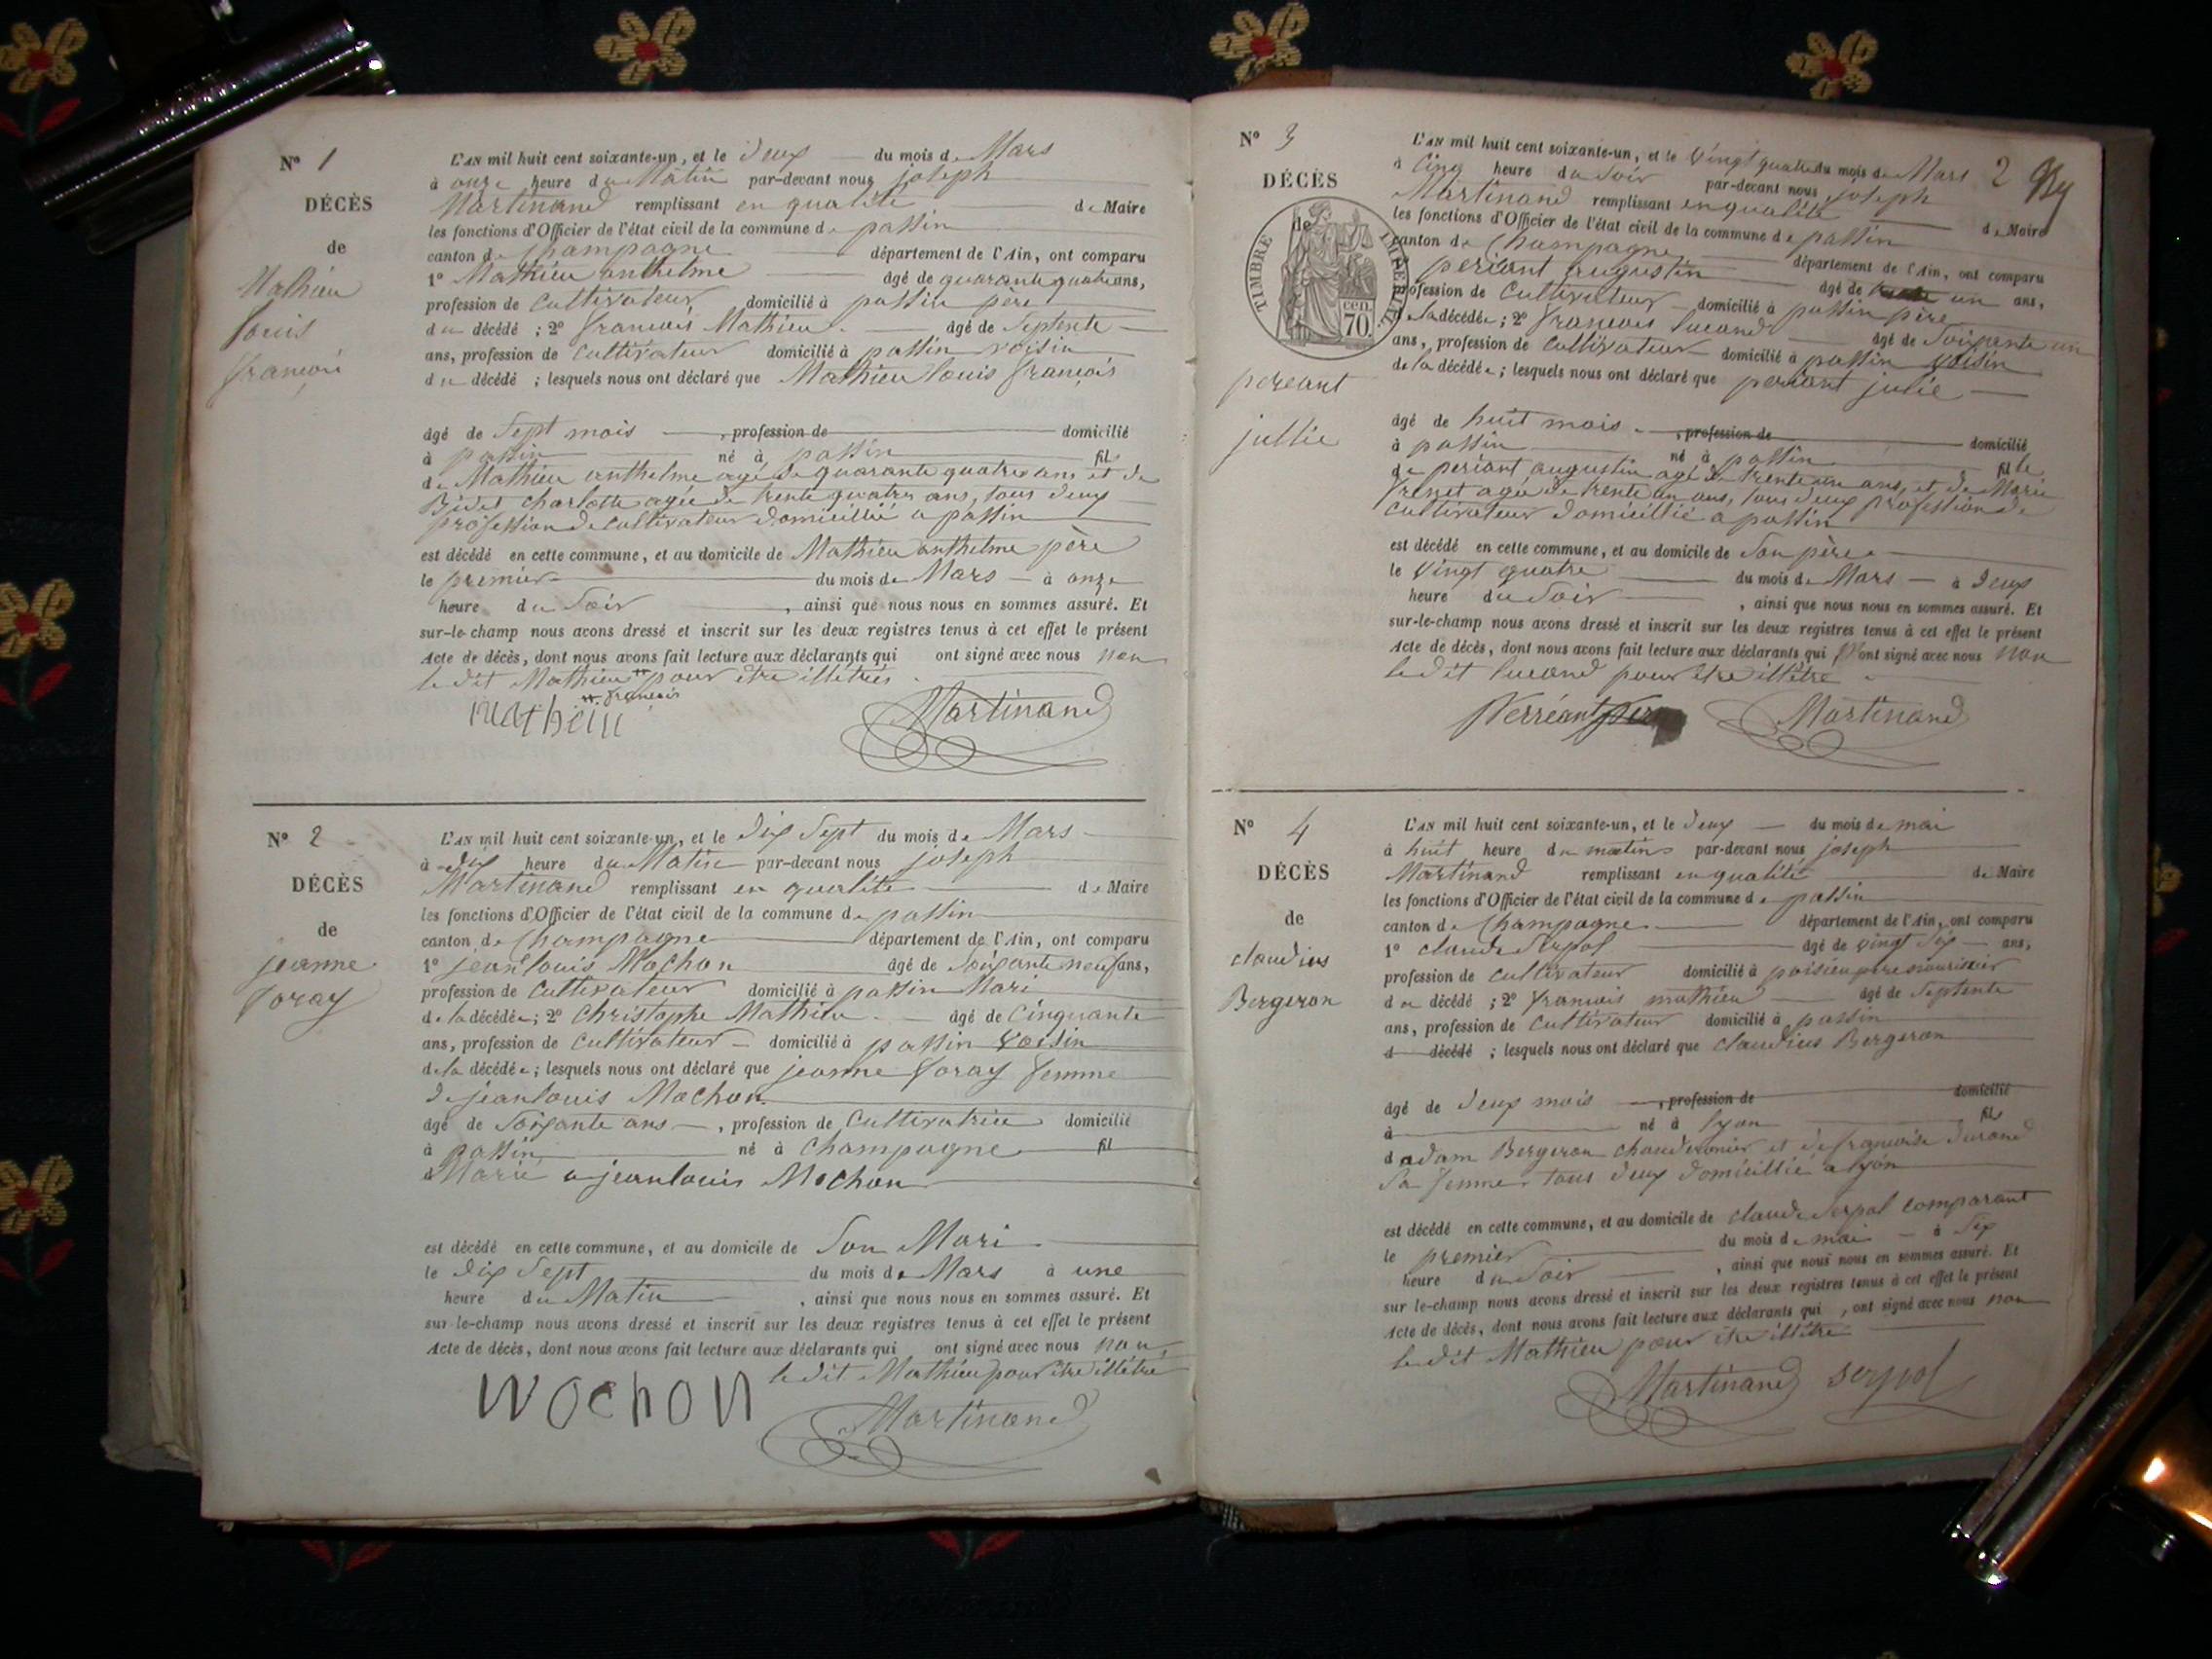 N° 1
DÉCÈS
de
Mathieu
Louis
francois
L'AN mil huit cent soixante-un, et le deux du mois de Mars
à onze heure du Matin par-devant nous joseph
Martinand remplissant en qualité de Maire
les fonctions d'Officier de l'état civil de la commune de passin
canton de Champagne département de l'Ain, ont comparu
1° Mathieu anthelme âgé de quarante quatre ans,
profession de Cultivateur domicilié à passin père
du décédé ; 2° francois Mathieu âgé de Septente
ans, profession de Cultivateur domicilié à passin voisin
du décédé ; lesquels nous ont déclaré que Mathieu louis francois
âgé de Sept mois , profession de domicilié
à passin né à passin fil
de Mathieu anthelme agé de quarante quatre ans et de
Bidet Charlotte agée de trente quatres ans, tous deux
profession de cultivateur domicillié a passin
est décédé en cette commune, et au domicile de Mathieu anthelme père
le premier du mois de Mars à onze
heure du Soir , ainsi que nous nous en sommes assuré. Et
sur-le-champ nous avons dressé et inscrit sur les deux registres tenus à cet effet le présent
Acte de décès, dont nous avons fait lecture aux déclarants qui ont signé avec nous non
le dit Mathieu pour être illétrés
francois
Martinand
N° 2
DÉCÈS
de
jeanne
foray
L'AN mil huit cent soixante-un, et le dix Sept du mois de Mars
à dix heure du Matin par-devant nous joseph
Martinand remplissant en qualité de Maire
les fonctions d'Officier de l'état civil de la commune de passin
canton de Champagne département de l'Ain, ont comparu
1° jean louis Mochon âgé de Soixante neuf ans,
profession de Cultivateur domicilié à passin Mari
de la décédée ; 2° Christophe Mathieu âgé de Cinquante
ans, profession de Cultivateur domicilié à passin Voisin
de la décédée ; lesquels nous ont déclaré que jeanne foray femme
de jeanlouis Mochon
âgé de Soixante ans , profession de Cultivatrice domicilié
à passin né à Champagne fil
d Marié a jeanlouis Mochon
est décédé en cette commune, et au domicile de Son Mari
le dix Sept du mois de Mars à une
heure du Matin , ainsi que nous nous en sommes assuré. Et
sur-le-champ nous avons dressé et inscrit sur les deux registres tenus à cet effet le présent
Acte de décès, dont nous avons fait lecture aux déclarants qui ont signé avec nous non
le dit Mathieu pour être illétré
Mochon
Martinand
2
N° 3
DÉCÈS
de
TIMBRE IMPÉRIAL
70 cen
pereant
jullie
L'AN mil huit cent soixante-un, et le Vingt quatre du mois de Mars
à Cinq heure du Soir par-devant nous joseph
Martinand remplissant en qualité de Maire
les fonctions d'Officier de l'état civil de la commune de passin
canton de Champagne département de l'Ain, ont comparu
periant augustin âgé de un ans,
profession de Cultivateur domicilié à passin père
de la décédée ; 2° francois Lucand âgé de Soixante un
ans, profession de Cultivateur domicilié à passin Voisin
de la décédée ; lesquels nous ont déclaré que periant julie
âgé de huit mois , profession de domicilié
à passin né à passin fille
de periant augustin agé de trente un ans, et de Marie
agée de trente un ans, tous deux profession de
cultivateur domicillié a passin
est décédé en cette commune, et au domicile de Son père
le Vingt quatre du mois de Mars à deux
heure du Soir , ainsi que nous nous en sommes assuré. Et
sur-le-champ nous avons dressé et inscrit sur les deux registres tenus à cet effet le présent
Acte de décès, dont nous avons fait lecture aux déclarants qui ont signé avec nous non
le dit Lucand pour être illétré
Perréant
Martinand
N° 4
DÉCÈS
de
claudius
Bergeron
L'AN mil huit cent soixante-un, et le deux du mois de mai
à huit heure du matin par-devant nous joseph
Martinand remplissant en qualité de Maire
les fonctions d'Officier de l'état civil de la commune de passin
canton de Champagne département de l'Ain, ont comparu
1° claude Serpol âgé de Vingt Six ans,
profession de Cultivateur domicilié à poisieu père nouricier
du décédé ; 2° francois mathieu âgé de Septente
ans, profession de Cultivateur domicilié à passin
d décédé ; lesquels nous ont déclaré que claudius Bergeron
âgé de deux mois , profession de domicilié
à né à lyon fils
d adam Bergeron chauderonier et de francoise durand
Sa femme tous deux domicillié a lyon
est décédé en cette commune, et au domicile de claude Serpol comparant
le premier du mois de mai à Six
heure du Soir , ainsi que nous nous en sommes assuré. Et
sur-le-champ nous avons dressé et inscrit sur les deux registres tenus à cet effet le présent
Acte de décès, dont nous avons fait lecture aux déclarants qui , ont signé avec nous non
le dit Mathieu pour être illétré
Martinand serpol